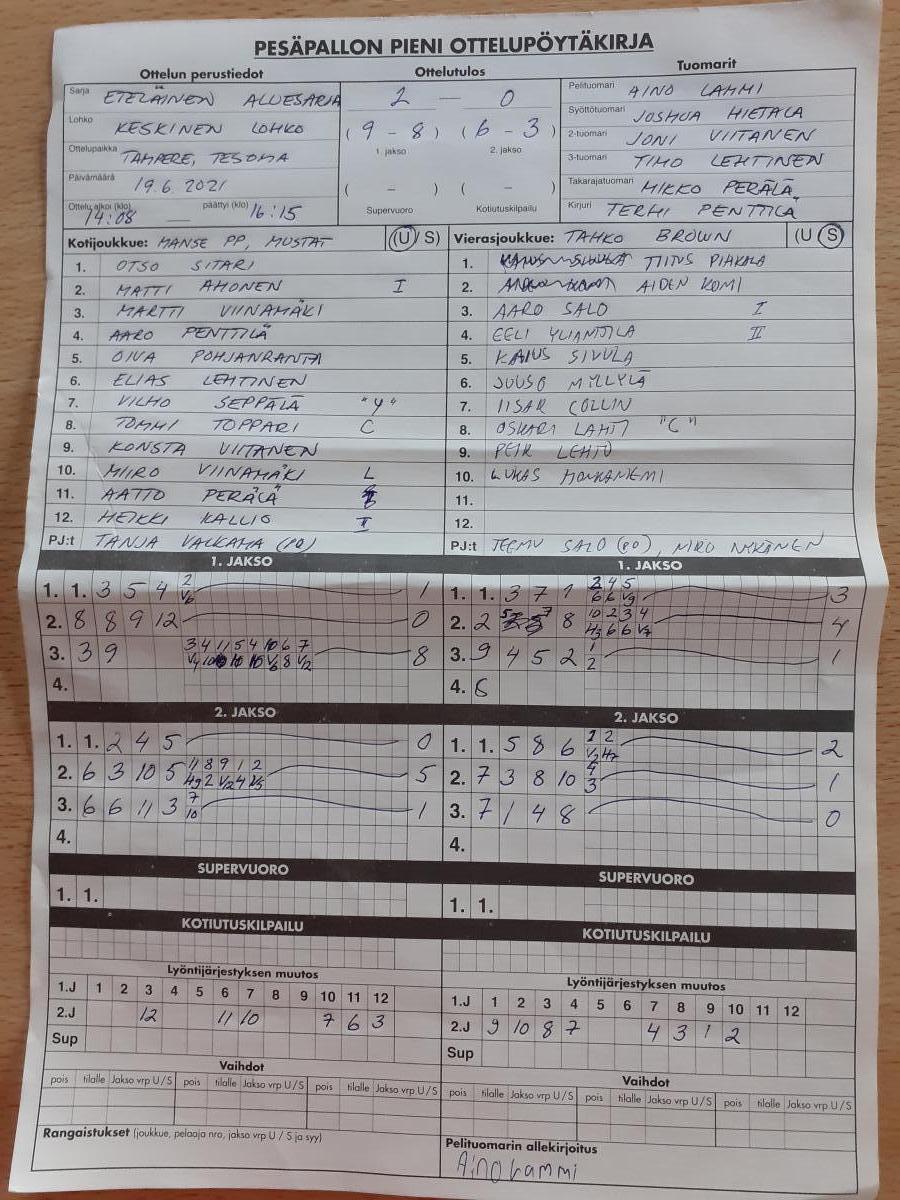 PESÄPALLON PIENI OTTELUPÖYTÄKIRJA
Ottelun perustiedot
Ottelutulos
Tuomarit
Sarja ETELÄINEN ALUESARJA
Lohko KESKINEN LOHKO
Ottelupaikka TAMPERE, TESOMA
Päivämäärä 19.6.2021
Ottelu alkoi (klo) 14:08 — päättyi (klo) 16:15
2 — 0
(9 - 8) (6 - 3)
1. jakso 2. jakso
( - ) ( - )
Supervuoro Kotiutuskilpailu
Pelituomari AINO LAHMI
Syöttötuomari JOSHUA HIETALA
2-tuomari JONI VIITANEN
3-tuomari TIMO LEHTINEN
Takarajatuomari MIKKO PERÄLÄ
Kirjuri TERHI PENTTILÄ
Kotijoukkue: MANSE PP, MUSTAT (U/S)
1. OTSO SITARI
2. MATTI AHONEN I
3. MARTTI VIINAMÄKI
4. AARO PENTTILÄ
5. OIVA POHJANRANTA
6. ELIAS LEHTINEN
7. VILHO SEPPÄLÄ "Y"
8. TOMMI TOPPARI C
9. KONSTA VIITANEN
10. MIIRO VIINAMÄKI L
11. AATTO PERÄLÄ
12. HEIKKI KALLIO II
PJ:t TANJA VALKAMA (PO)
Vierasjoukkue: TAHKO BROWN (U S)
1. TIITUS PIHKALA
2. AIDEN KOMI
3. AARO SALO I
4. EELI YLIANTTILA II
5. KAIUS SIVULA
6. JUUSO MYLLYLÄ
7. IISAK COLLIN
8. OSKARI LAHTI "C"
9. PETR LEHTO
10. LUKAS
11.
12.
PJ:t TEEMU SALO (PO), MIRO NYKÄNEN
1. JAKSO
1. 1. 3 5 4 2 V6 1
2. 8 8 9 12 0
3. 3 9 3 4 11 5 4 10 6 7 8
4.
1. JAKSO
1. 1. 3 7 1 2 4 5 6 6 V9 3
2. 2 5 7 8 10 2 3 4 H3 6 6 V7 4
3. 9 4 5 2 1 2 1
4. 6
2. JAKSO
1. 1. 2 4 5 0
2. 6 3 10 5 11 8 9 1 2 H9 2 V12 4 V5 5
3. 6 6 11 3 7 10 1
4.
2. JAKSO
1. 1. 5 8 6 1 2 V2 H7 2
2. 7 3 8 10 4 3 1
3. 7 1 4 8 0
4.
SUPERVUORO
1. 1.
SUPERVUORO
1. 1.
KOTIUTUSKILPAILU
KOTIUTUSKILPAILU
Lyöntijärjestyksen muutos
1.J 1 2 3 4 5 6 7 8 9 10 11 12
2.J 12 11 10 7 6 3
Sup
Lyöntijärjestyksen muutos
1.J 1 2 3 4 5 6 7 8 9 10 11 12
2.J 9 10 8 7 4 3 1 2
Sup
Vaihdot
pois tilalle Jakso vrp U/S pois tilalle Jakso vrp U/S pois tilalle Jakso vrp U/S
Vaihdot
pois tilalle Jakso vrp U/S pois tilalle Jakso vrp U/S pois tilalle Jakso vrp U/S
Rangaistukset (joukkue, pelaaja nro, jakso vrp U / S ja syy)
Pelituomarin allekirjoitus
Aino Lammi